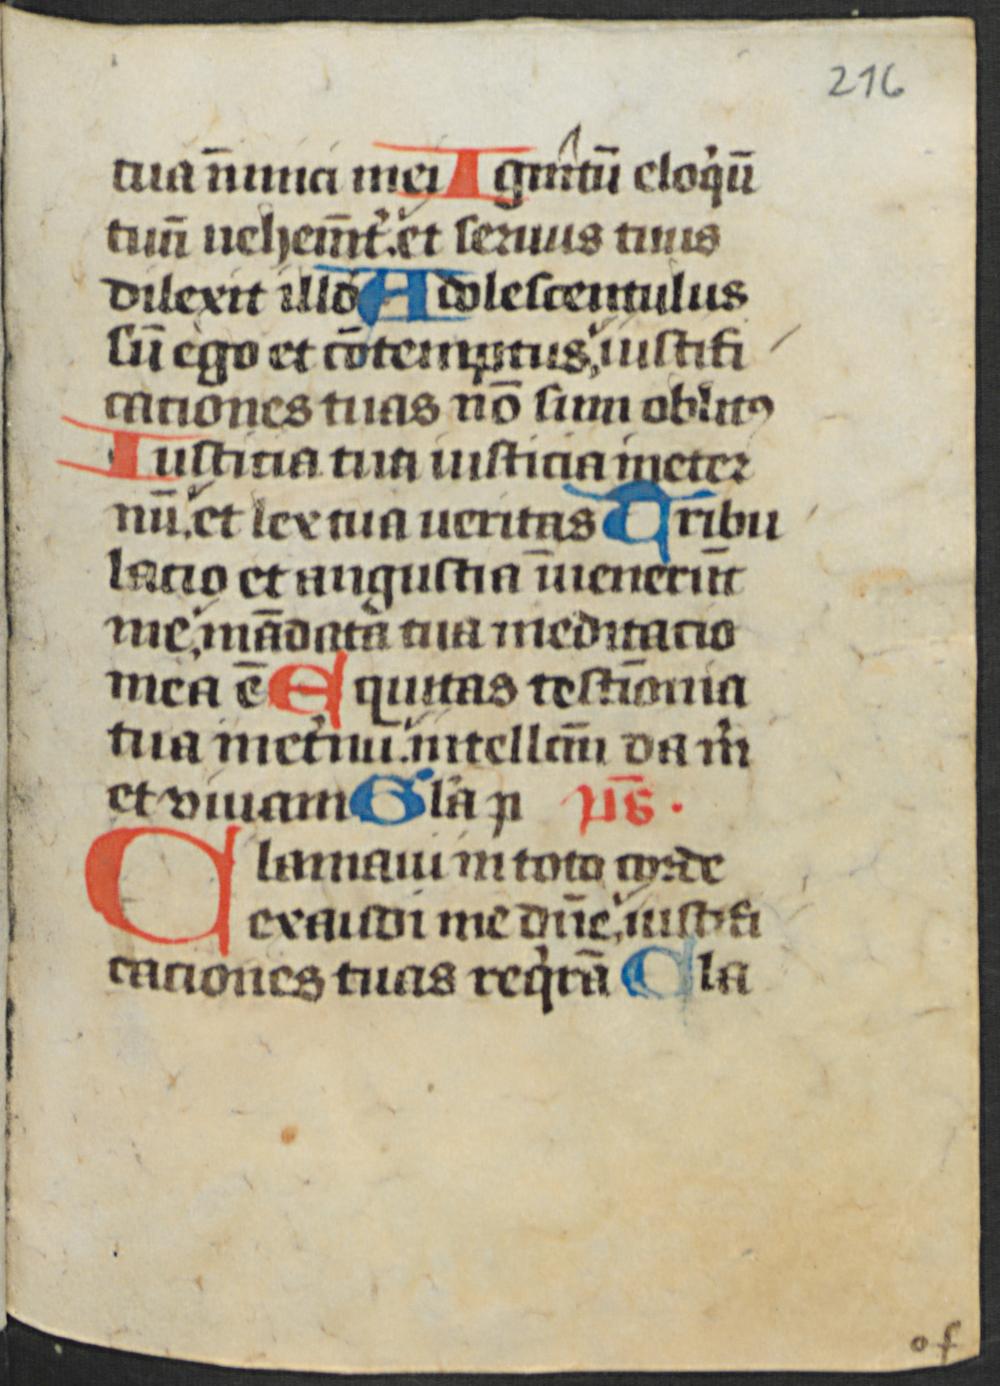 216
tua nīmici mei Ignitū eloq̄ū
tuū uehemn̄t᷒. et seruus tuus
dilexit illd̄ Adolescentulus
sū ego et cōtemptus, iustifi
cationes tuas nō sum oblitꝰ
Iusticia tua iusticia in eter
nū. et lex tua ueritas Tribu
latio et angustia īuenerūt
me, mādata tua meditacio
mea ē Equitas testīonia
tua in et̓nū. intellcm̄ da m̓
et viuam Gl̄a p ps̄.
Clamaui in toto corde
exaudi me dn̄e, iustifi
cationes tuas reqͥrā Cla
of